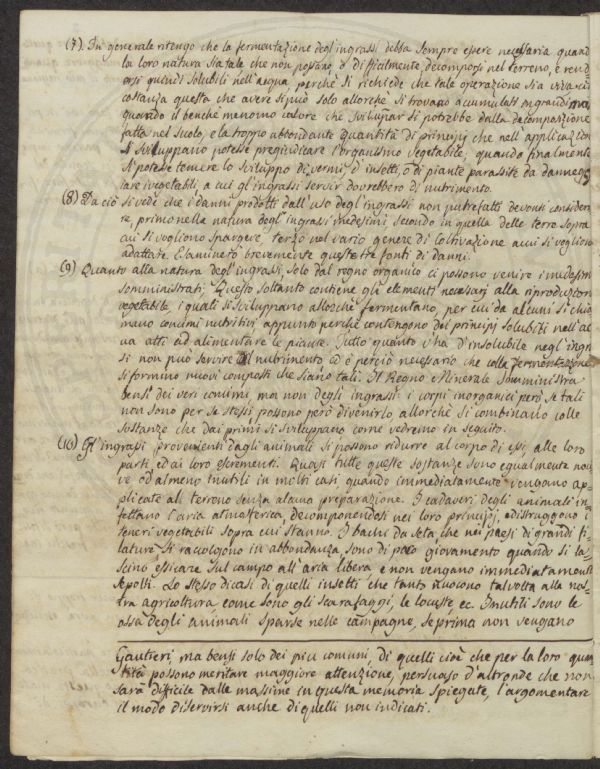 (7.) In generale ritengo che la fermentazione degl'ingrassi debba sempre essere necessaria quand
la loro natura sia tale che non possano, o difficilmente decomporsi nel terreno, e rend
ersi quindi solubili nell'acqua, perchè si richiede che tale operazione sia vi
costanza questa che avere si può solo allorchè si trovano accumulati in grandi ma
quando il benchè menomo calore che sviluppar si potrebbe dalla decomposizione
fatta nel suolo, e la troppo abbondante quantità di principj che nell'applicazion
si sviluppano potesse pregiudicare l'organismo vegetabile, quando finalmente
si potesse temere lo sviluppo di vermi, d'insetti, o di piante parassite da danneg=
iare i vegetabili, a cui gl'ingrassi servir dovrebbero di nutrimento.
(8) Da ciò si vede che i danni prodotti dall'uso degl'ingrassi non putrefatti devonsi consider
re, primo nella natura degl'ingrassi medesimi, secondo in quella delle terre sopra
cui si vogliono spargere, terzo nel vario genere di coltivazione a cui si vogliono
adattate. Esaminerò brevemente queste tre fonti di danni.
(9) Quanto alla natura degl'ingrassi, solo dal regno organico ci possono venire i medesimi
somministrati; questo soltanto contiene gli elementi necessarj alla riproduzion
vegetabile, i quali si sviluppano allorchè fermentano, per cui da alcuni si chia
mano concimi nutritivi appunto perchè contengono dei principj solubili nell'ac
qua atti ad alimentare le piante. Tutto quanto v'ha d'insolubile negl'ingra
si non può servire di nutrimento ed è perciò necessario che colla fermentazione
si formino nuovi composti che siano tali. Il Regno Minerale somministra
bensì dei veri concimi, ma non degli ingrassi: i corpi inorganici però se tali
non sono per se stessi possono però divenirlo allorchè si combinano colle
sostanze che dai primi si sviluppano come vedremo in seguito.
(10) Gl'ingrassi provenienti dagli animali si possono ridurre al corpo di essi, alle loro
parti, ed ai loro escrementi. Quasi tutte queste sostanze sono egualmente noci
ve od almeno inutili in molti casi, quando immediatamente vengono ap=
plicate al terreno senza alcuna preparazione. I cadaveri degli animali in=
fettano l'aria atmosferica, decomponendosi nei loro principj, e distruggono i
teneri vegetabili sopra cui stanno. I bachi da seta, che nei paesi di grandi fi=
lature si raccolgono in abbondanza, sono di poco giovamento quando si la=
scino essicare sul campo all'aria libera e non vengano immediatamente
sepolti. Lo stesso dicasi di quelli insetti che tanto nuocono talvolta alla nos=
tra agricoltura, come sono gli scarafaggi, le locuste, ec. Inutili sono le
ossa degli animali sparse nelle campagne, se prima non vengano
Gautieri, ma bensì solo dei più comuni, di quelli cioè che per la loro quan
tità possono meritare maggiore attenzione, persuaso d'altronde che non
sarà difficile dalle massime in questa memoria spiegate, l'argomentare
il modo di servirsi anche di quelli non indicati.